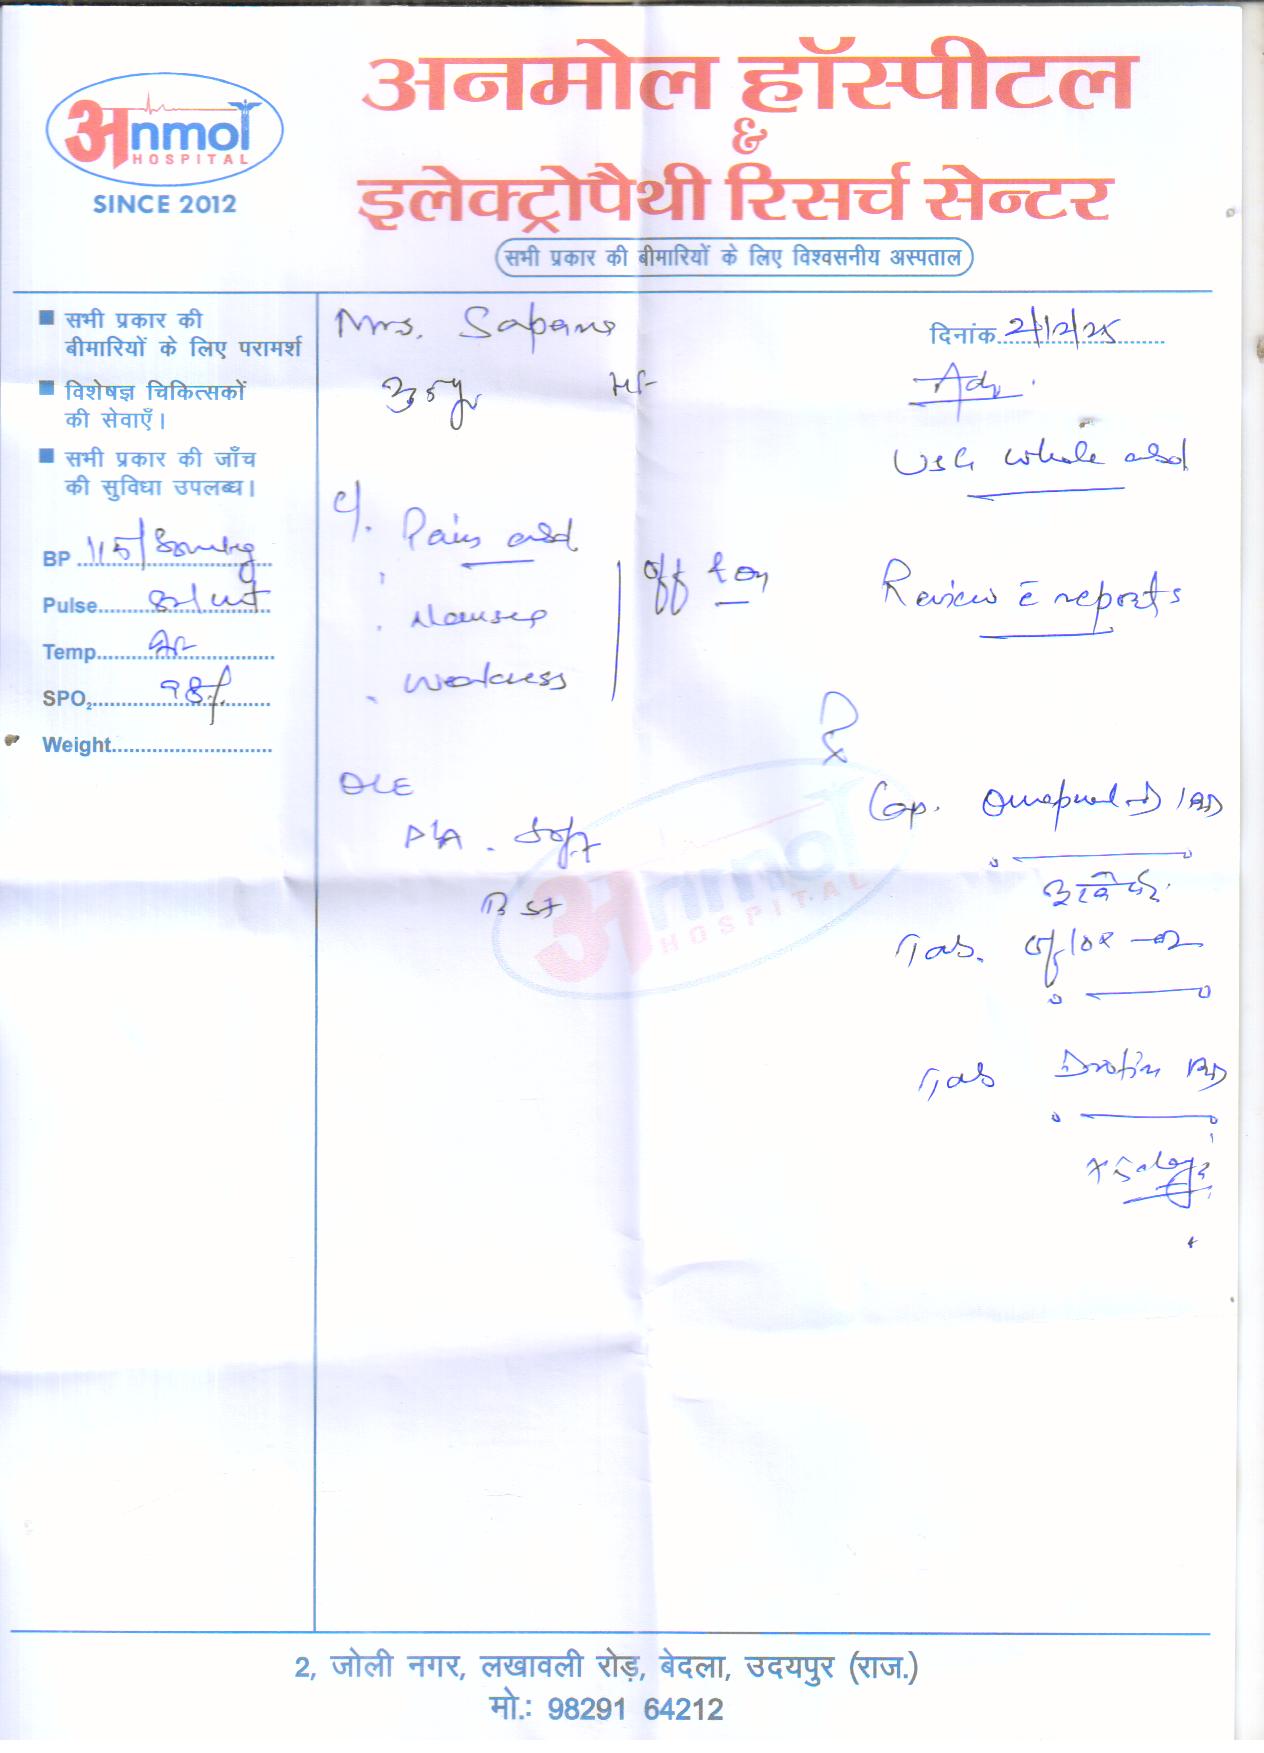 अnmol
HOSPITAL
SINCE 2012
अनमोल हॉस्पीटल
&
इलेक्ट्रोपैथी रिसर्च सेन्टर
सभी प्रकार की बीमारियों के लिए विश्वसनीय अस्पताल
सभी प्रकार की
बीमारियों के लिए परामर्श
विशेषज्ञ चिकित्सकों
की सेवाएँ।
सभी प्रकार की जाँच
की सुविधा उपलब्ध।
BP 115/
Pulse
Temp
SPO₂ 98%
Weight
Mrs.
दिनांक 2/12/25
Adv.
USG whole abd
Review c̄ reports
Pain abd
Nausea
weakness
off & on
O/E
P/A. Soft
Rx
Cap. Omeprazol-D 1BD
Tab. Oflox-OZ
Tab Drotin BD
x 5 days
अnmol
HOSPITAL
2, जोली नगर, लखावली रोड़, बेदला, उदयपुर (राज.)
मो.: 98291 64212